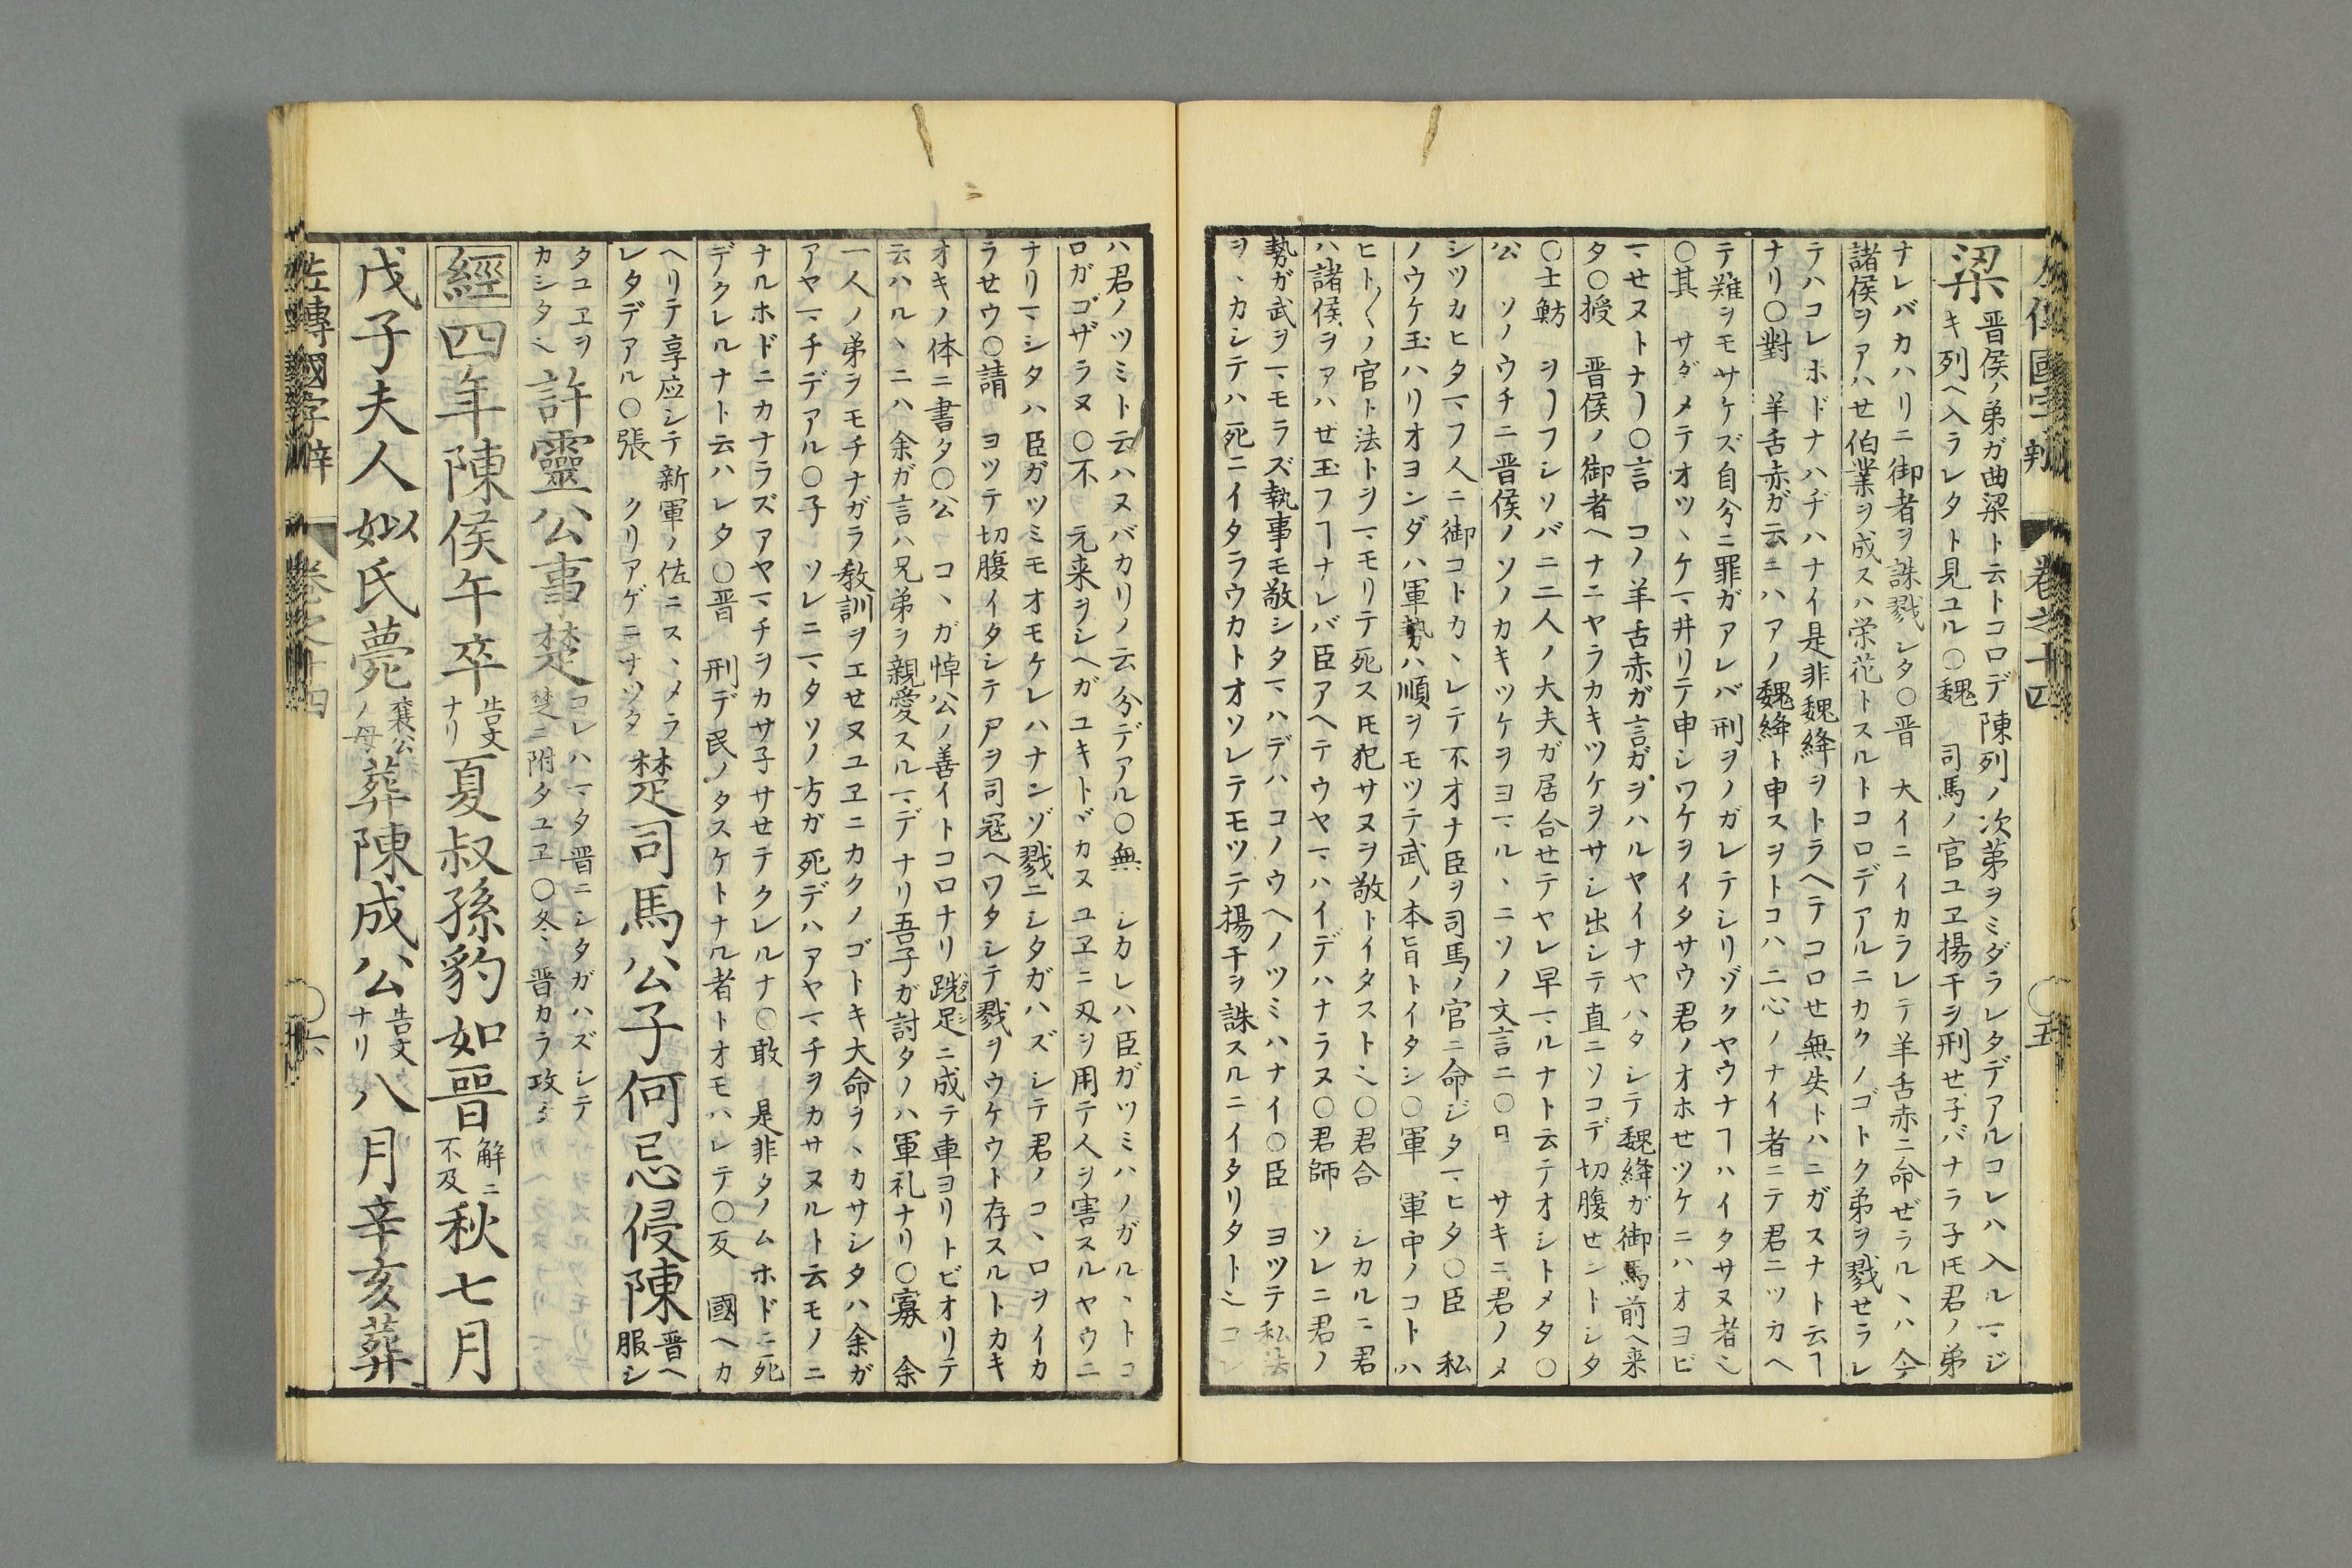 左傳國字辨 卷之十四 ○五
梁
晋侯ノ弟ガ曲梁ト云トコロデ陳列ノ次第ヲミダラレタデアルコレハ入ルマジ
キ列ヘ入ラレタト見ユル○魏 司馬ノ官ユヱ揚干ヲ刑せ子バナラ子𪜈君ノ弟
ナレバカハリニ御者ヲ誅戮シタ○晋 大イニイカラレテ羊舌赤ニ命ぜラルヽハ今
諸侯ヲアハせ伯業ヲ成スハ栄花トスルトコロデアルニカクノゴトク弟ヲ戮せラレ
テハコレホドナハヂハナイ是非魏絳ヲトラヘテコロせ無失トハニガスナト云ヿ
ナリ○對 羊舌赤ガ云ニハアノ魏絳ト申スヲトコハ二心ノナイ者ニテ君ニツカヘ
テ難ヲモサケズ自分ニ罪ガアレバ刑ヲノガレテシリゾクヤウナヿハイタサヌ者也
○其 サダメテオツヽケマ井リテ申シワケヲイタサウ君ノオホせツケニハオヨビ
マせヌトナリ○言 コノ羊舌赤ガ言ガヲハルヤイナヤハタシテ魏絳ガ御馬前ヘ来
タ○授 晋侯ノ御者ヘナニヤラカキツケヲサシ出シテ直ニソコデ切腹せントシタ
○士魴 ヲリフシソバニ二人ノ大夫ガ居合せテヤレ早マルナト云テオシトメタ○
公 ソノウチニ晋侯ノソノカキツケヲヨマルヽニソノ文言ニ○日 サキニ君ノメ
シツカヒタマフ人ニ御コトカヽレテ不才ナ臣ヲ司馬ノ官ニ命ジタマヒタ○臣 私
ノウケ玉ハリオヨンダハ軍勢ハ順ヲモツテ武ノ本旨トイタシ○軍 軍中ノコトハ
ヒト〳〵ノ官ト法トヲマモリテ死ス𪜈犯サヌヲ敬トイタスト也○君合 シカルニ君
ハ諸侯ヲアハせ玉フヿナレバ臣アヘテウヤマハイデハナラヌ○君師 ソレニ君ノ
勢ガ武ヲマモラズ執事モ敬シタマハデハコノウヘノツミハナイ○臣 ヨツテ私法
ヲヽカシテハ死ニイタラウカトオソレテモツテ揚干ヲ誅スルニイタリタト也コレ
ハ君ノツミト云ハヌバカリノ云分デアル○無 シカレハ臣ガツミハノガルヽトコ
ロガゴザラヌ○不 元来ヲシヘガユキトヾカヌユヱニ刄ヲ用テ人ヲ害スルヤウニ
ナリマシタハ臣ガツミモオモケレハナンゾ戮ニシタガハズシテ君ノコヽロヲイカ
ラせウ○請 ヨツテ切腹イタシテ尸ヲ司寇ヘワタシテ戮ヲウケウト存スルトカキ
オキノ体ニ書タ○公 コヽガ悼公ノ善イトコロナリ跣足ニ成テ車ヨリトビオリテ
云ハルヽニハ余ガ言ハ兄弟ヲ親愛スルマデナリ吾子ガ討タノハ軍礼ナリ○寡 余
一人ノ弟ヲモチナガラ教訓ヲエせヌユヱニカクノゴトキ大命ヲヽカサシタハ余ガ
アヤマチデアル○子 ソレニマタソノ方ガ死デハアヤマチヲカサヌルト云モノニ
ナルホドニカナラズアヤマチヲカサ子サせテクレルナ○敢 是非タノムホドニ死
デクレルナト云ハレタ○晋 刑デ民ノタスケトナル者トオモハレテ○反 國ヘカ
ヘリテ享应シテ新軍ノ佐ニスヽメラ
レタデアル○張 クリアゲニナツタ
楚司馬公子何忌侵陳
晋ヘ
服シ
タユヱヲ
カシタ也
許靈公事楚
コレハマタ晋ニシタガハズシテ
楚ニ附タユヱ○冬、晋カラ攻
經四年陳侯午卒
告文
ナリ
夏叔孫豹如晋
解ニ
不及
秋七月
戊子夫人姒氏薨
襄公
ノ母
葬陳成公
告文
ナリ
八月辛亥葬
左傳國字辨 卷之十四 ○六